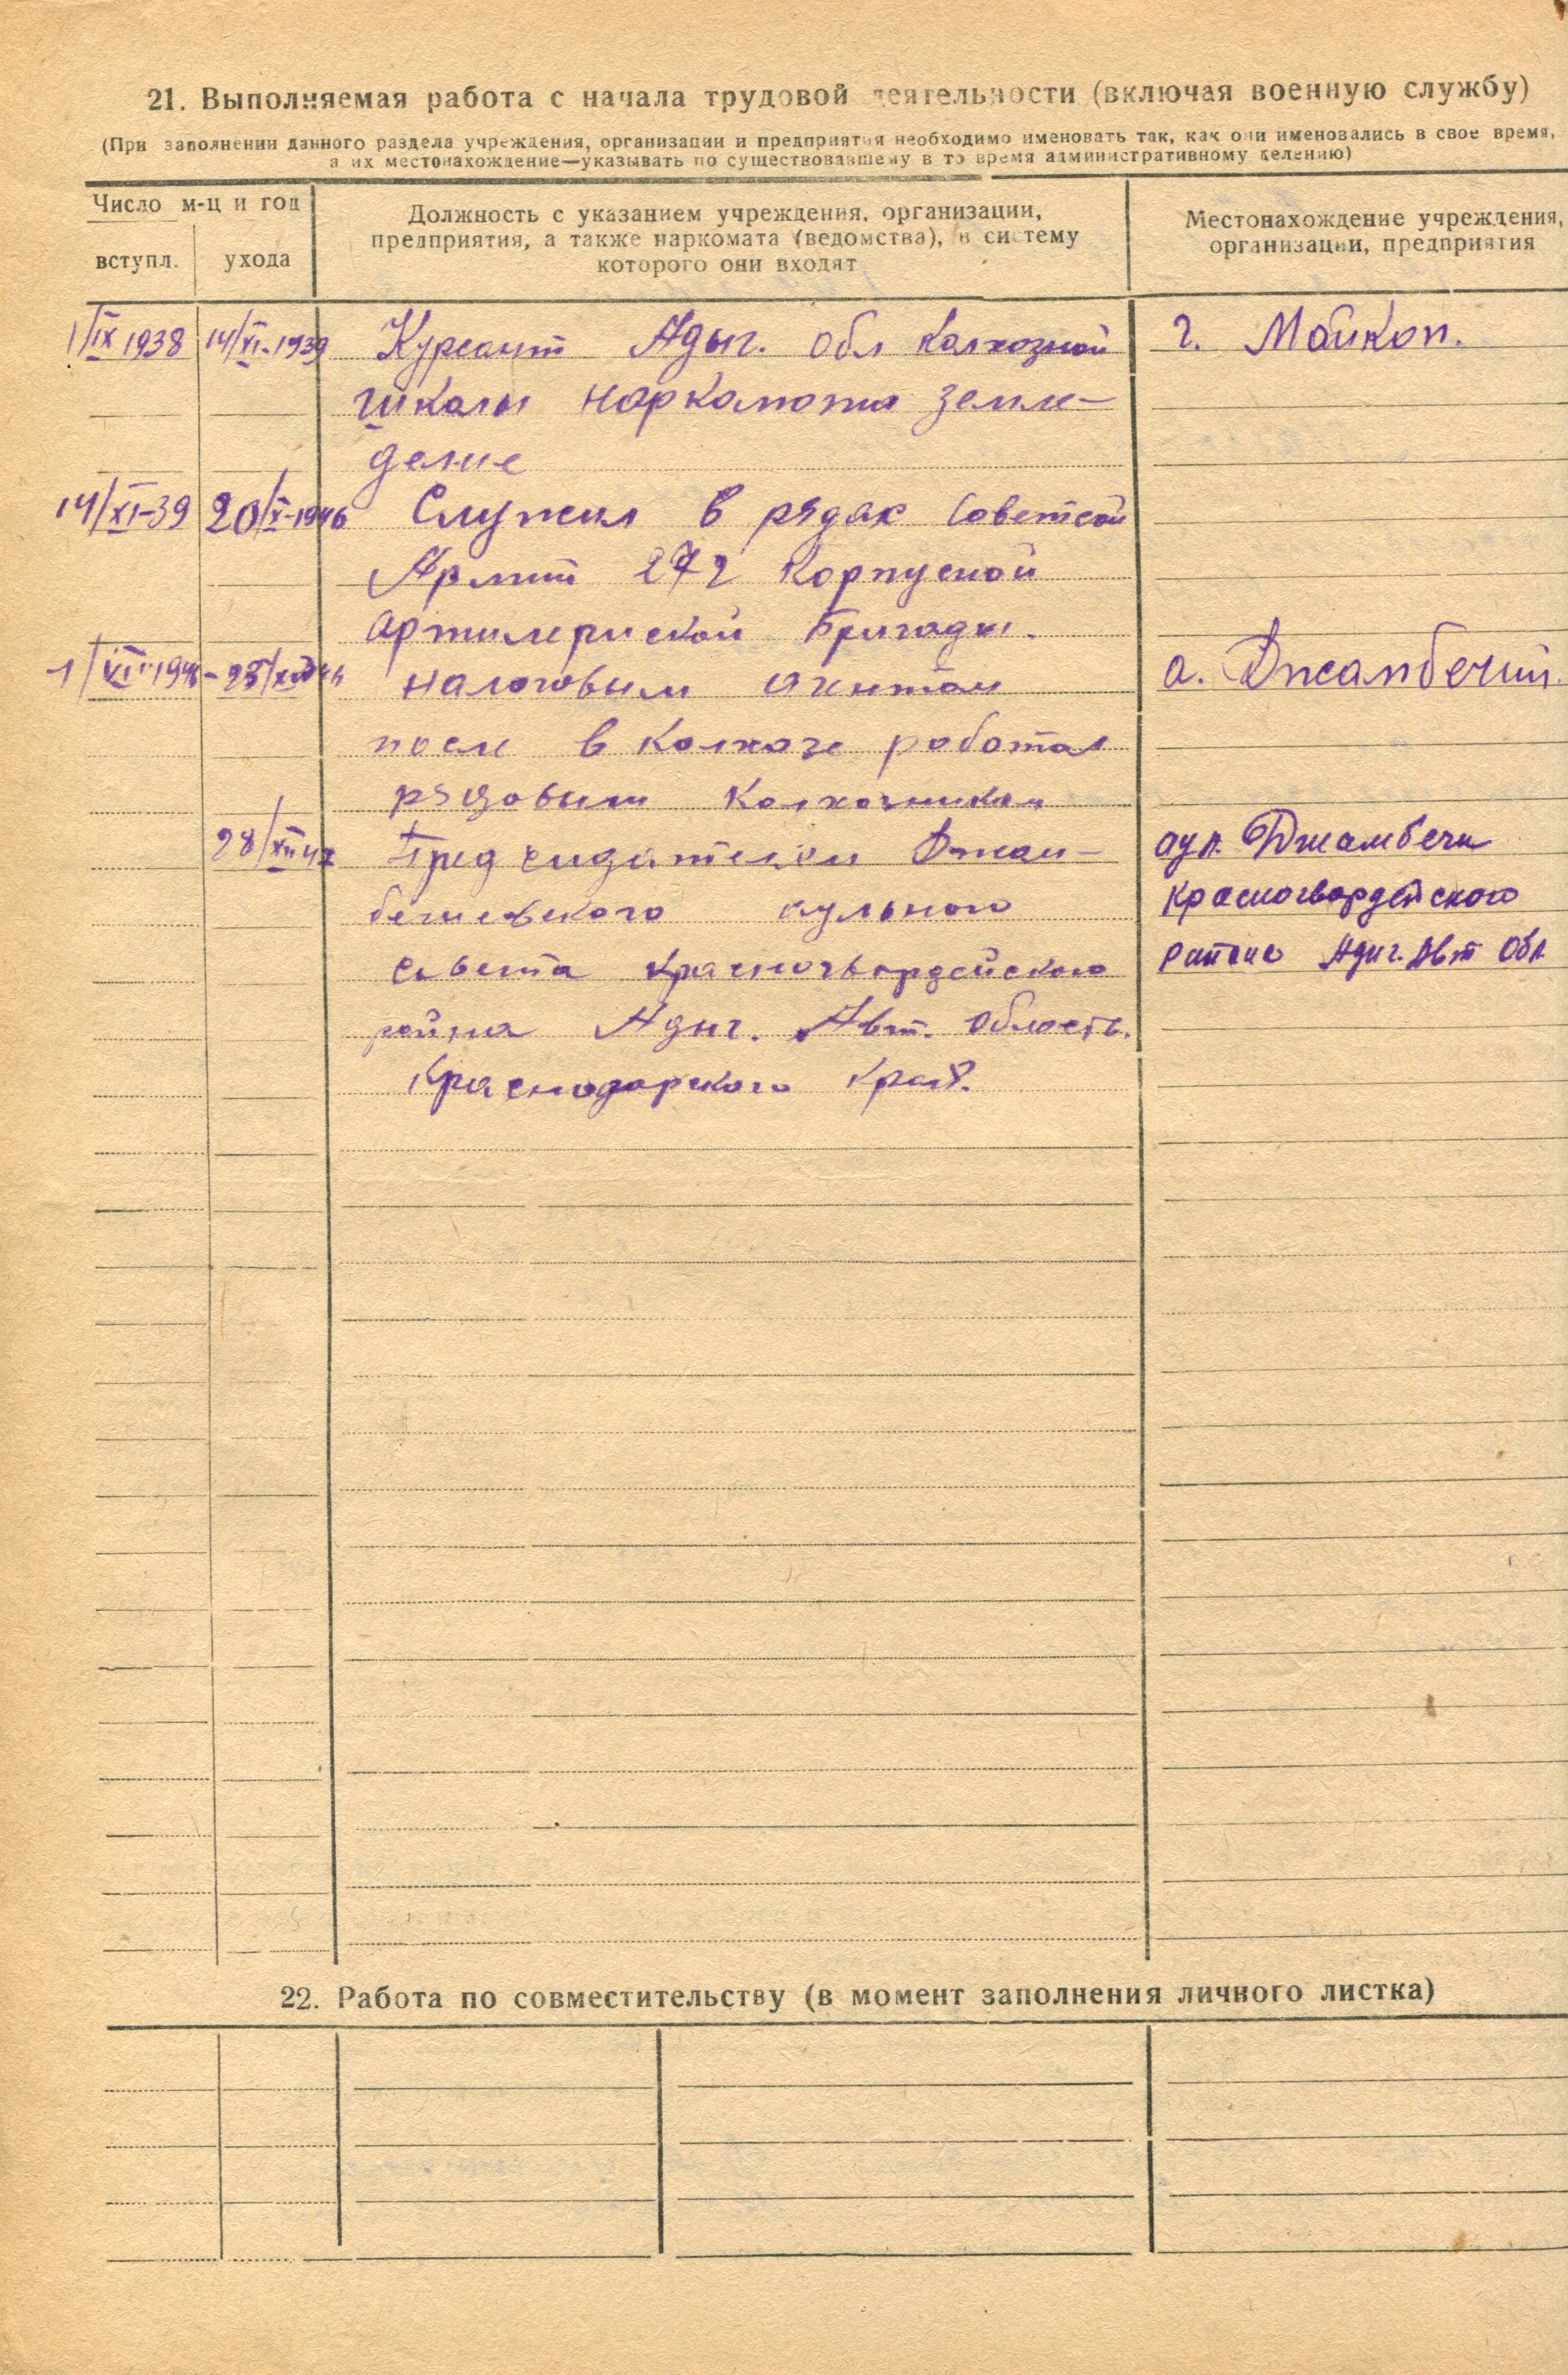 21. Выполняемая работа с начала трудовой деятельности (включая военную службу)
(При заполнении данного раздела учреждения, организации и предприятия необходимо именовать так, как они именовались в свое время,
а их местонахождение—указывать по существовавшему в то время административному делению)
Число м-ц и год
вступл. ухода
Должность с указанием учреждения, организации,
предприятия, а также наркомата (ведомства), в систему
которого они входят
Местонахождение учреждения,
организации, предприятия
1/IX 1938 14/XI-1939 Курсант Адыг. обл Колхозной г. Майкоп.
школы наркомата земле-
делие
14/XI-39 20/X-1946 Служил в рядах Советской
Армит 272 Корпусной
артилериской Бригады.
налоговым агентом а. Джамбечий.
после в колхозе работал
рядовым колхозником
28/XII 47 Предсидателем Джам- аул. Джамбечи
бечиевского аульного Красногвордейского
совета Красногвордейского района Адыг. Авт Обл.
района Адыг. Авт. Область.
Краснодарского края.
22. Работа по совместительству (в момент заполнения личного листка)